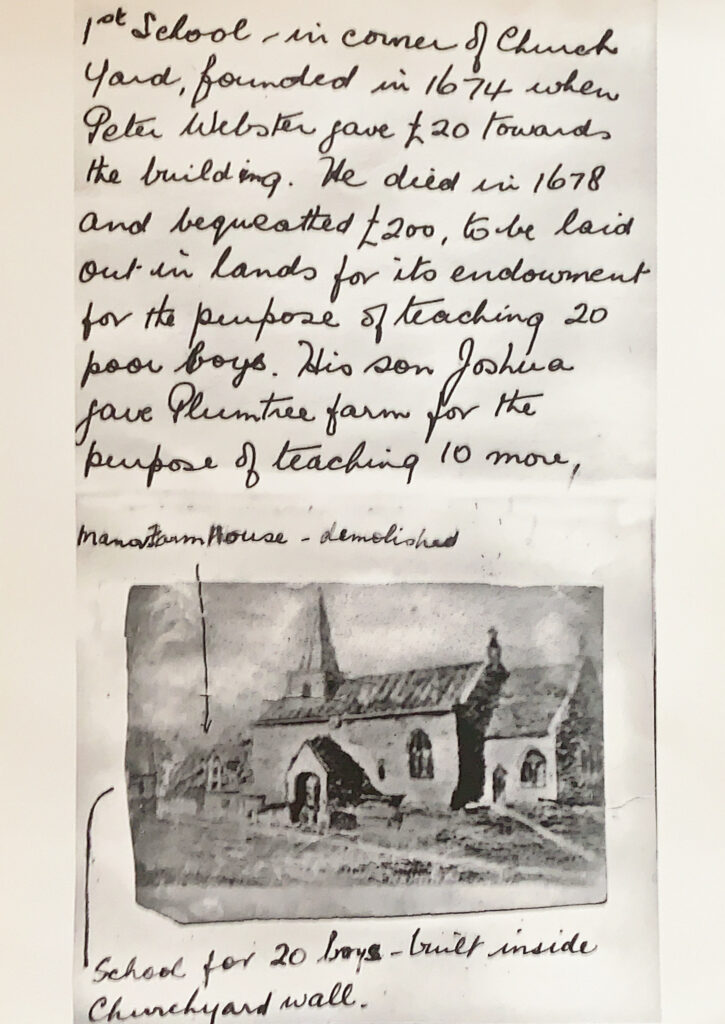 1st School - in corner of Church
Yard, founded in 1674 when
Peter Webster gave £20 towards
the building. He died in 1678
and bequeathed £200, to be laid
out in lands for its endowment
for the purpose of teaching 20
poor boys. His son Joshua
gave Plumtree farm for the
purpose of teaching 10 more,
Manor Farm House - demolished
School for 20 boys - built inside
Churchyard wall.